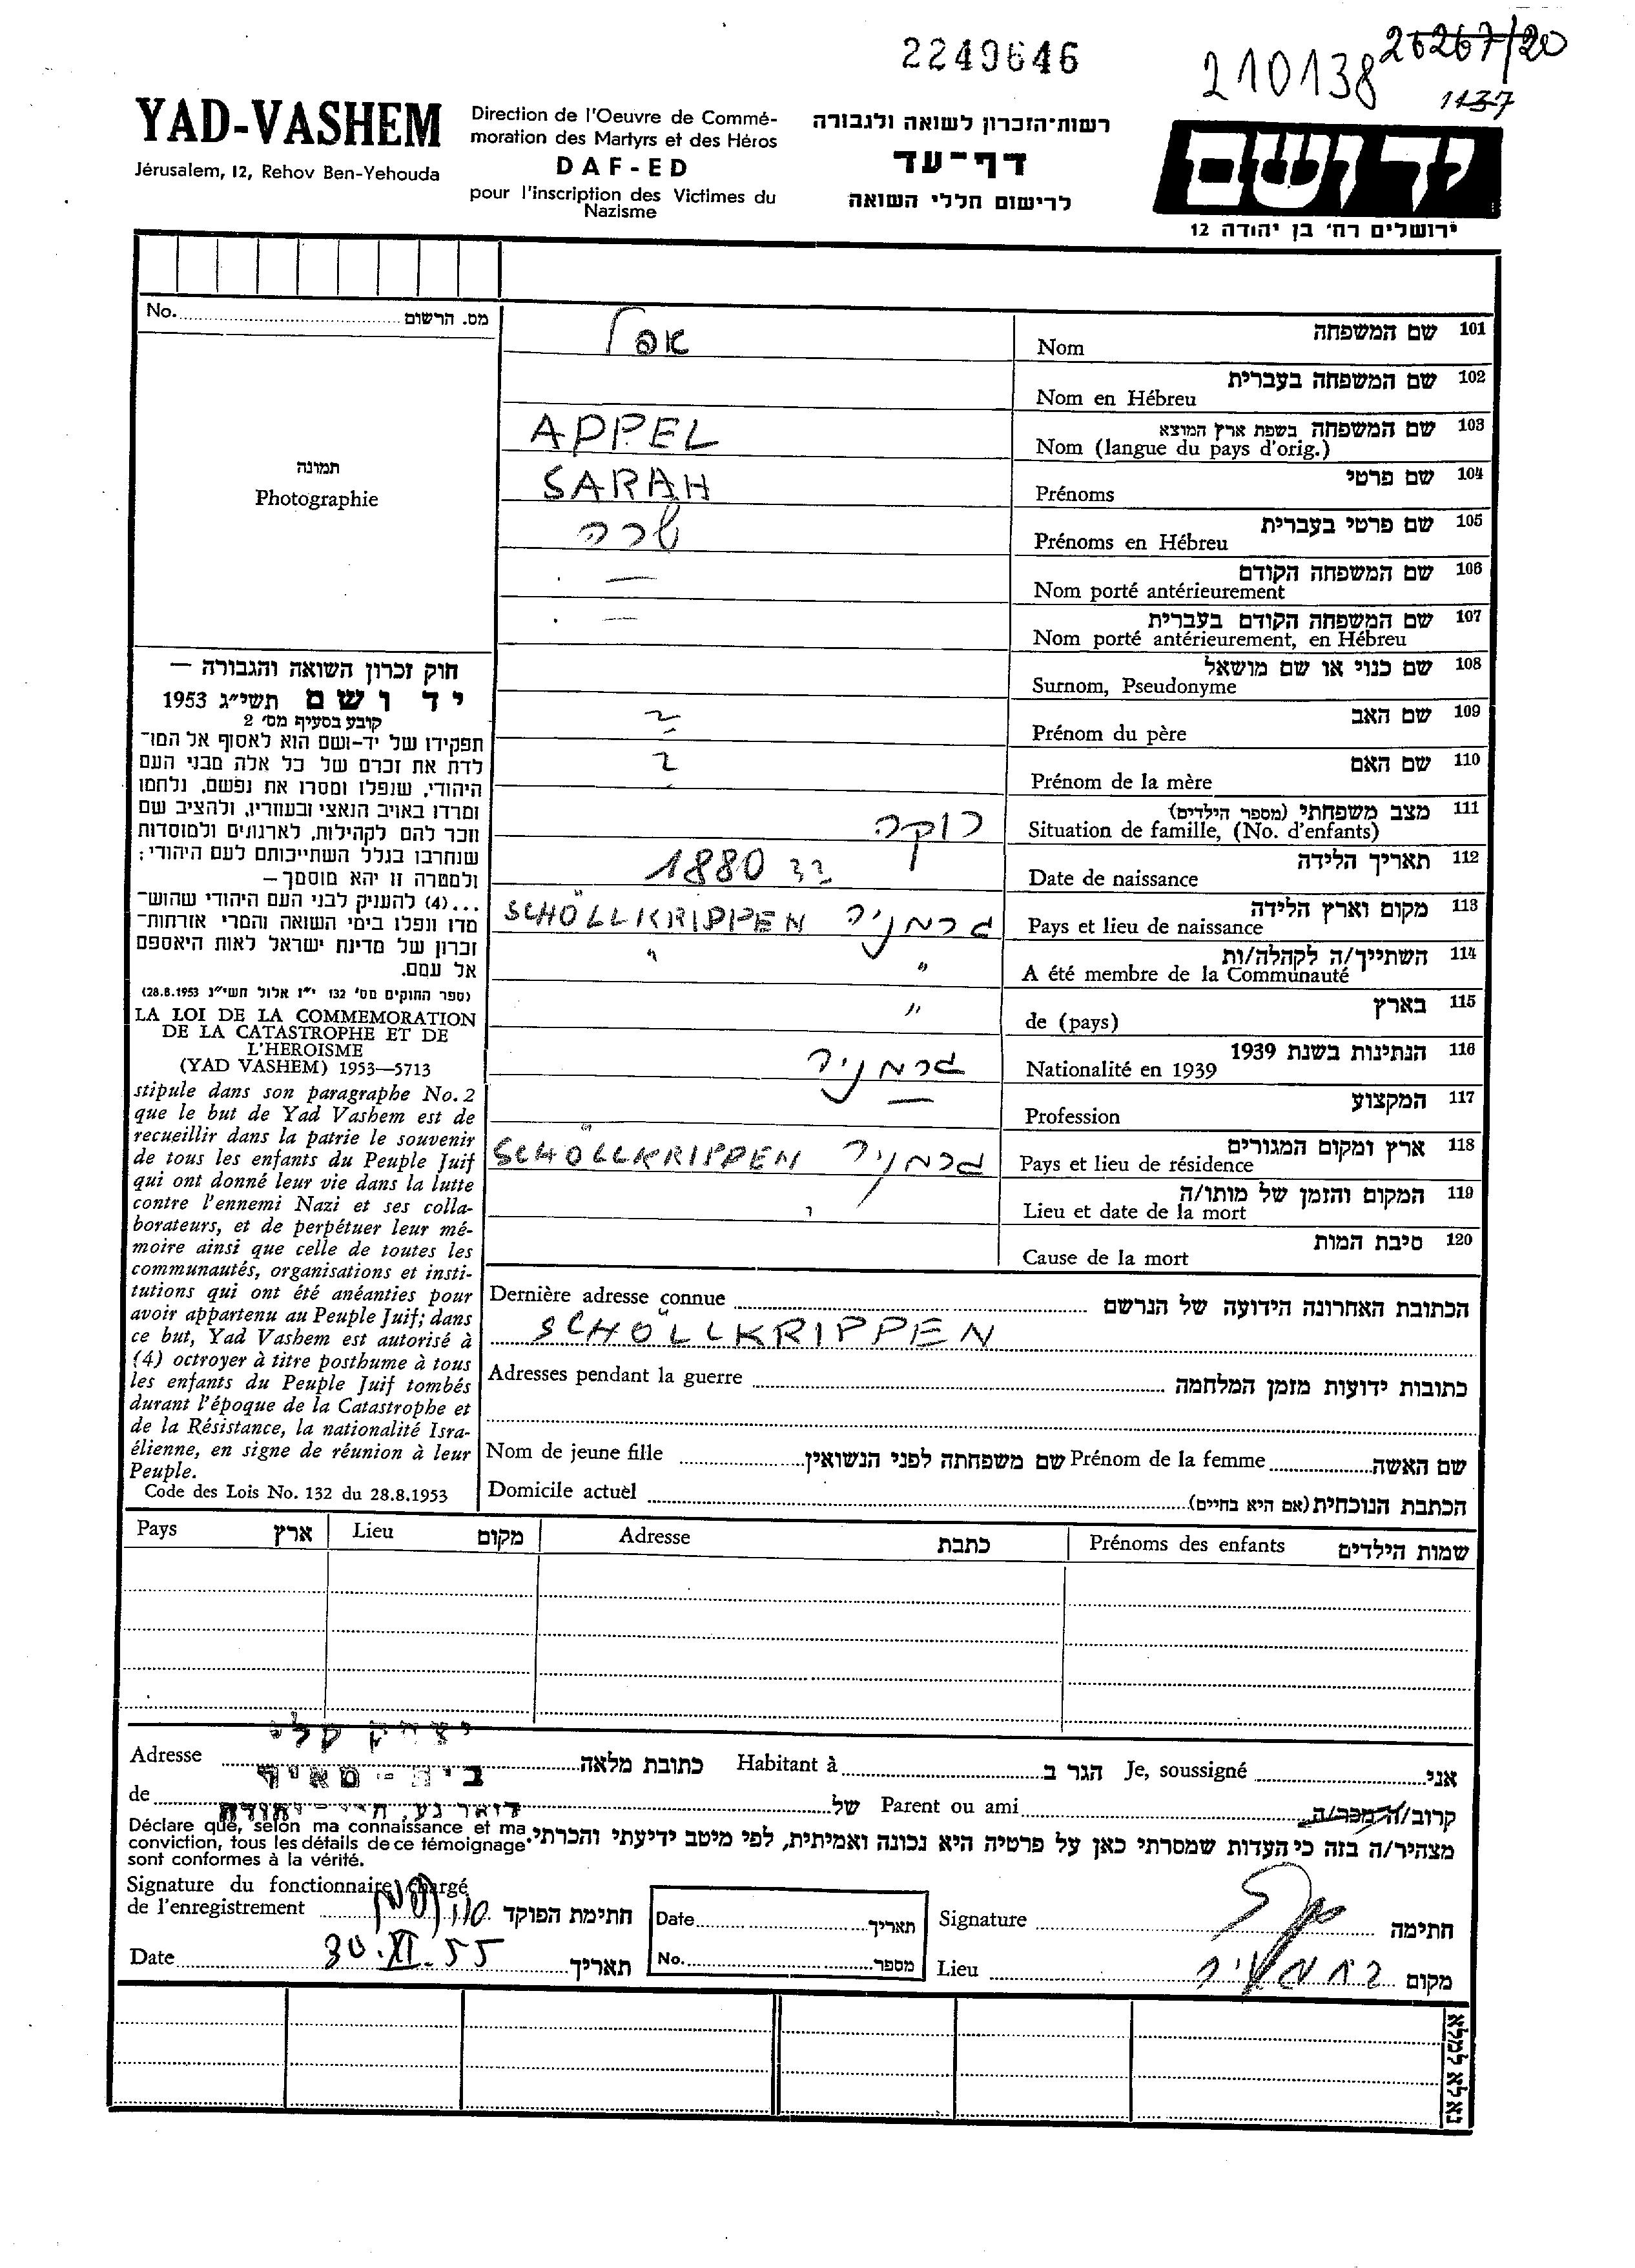 2249646
210138
26267/20
1137
YAD-VASHEM
Jérusalem, 12, Rehov Ben-Yehouda
Direction de l'Oeuvre de Commé-
moration des Martyrs et des Héros
DAF-ED
pour l'inscription des Victimes du
Nazisme
רשות־הזכרון לשואה ולגבורה
דף-עד
לרישום חללי השואה
יד ושם
ירושלים רח' בן יהודה 12
No. מס. הרשום
תמונה
Photographie
אפל
שם המשפחה 101
Nom
שם המשפחה בעברית 102
Nom en Hébreu
APPEL
שם המשפחה בשפת ארץ המוצא 103
Nom (langue du pays d'orig.)
SARAH
שם פרטי 104
Prénoms
שרה
שם פרטי בעברית 105
Prénoms en Hébreu
—
שם המשפחה הקודם 106
Nom porté antérieurement
—
שם המשפחה הקודם בעברית 107
Nom porté antérieurement, en Hébreu
שם כנוי או שם מושאל 108
Surnom, Pseudonyme
?
שם האב 109
Prénom du père
?
שם האם 110
Prénom de la mère
רוקה
מצב משפחתי (מספר הילדים) 111
Situation de famille, (No. d'enfants)
1880
תאריך הלידה 112
Date de naissance
גרמניה SCHÖLLKRIPPEN
מקום וארץ הלידה 113
Pays et lieu de naissance
" "
השתייך/ה לקהלה/ות 114
A été membre de la Communauté
"
בארץ 115
de (pays)
גרמניה
הנתינות בשנת 1939 116
Nationalité en 1939
—
המקצוע 117
Profession
גרמניה SCHÖLLKRIPPEN
ארץ ומקום המגורים 118
Pays et lieu de résidence
?
המקום והזמן של מותו/ה 119
Lieu et date de la mort
סיבת המות 120
Cause de la mort
חוק זכרון השואה והגבורה —
יד ושם תשי״ג 1953
קובע בסעיף מס' 2
תפקידו של יד-ושם הוא לאסוף אל המו־
לדת את זכרם של כל אלה מבני העם
היהודי, שנפלו ומסרו את נפשם, נלחמו
ומרדו באויב הנאצי ובעוזריו, ולהציב שם
וזכר להם לקהילות, לארגונים ולמוסדות
שנחרבו בגלל השתייכותם לעם היהודי;
ולמטרה זו יהא מוסמך —
...(4) להעניק לבני העם היהודי שהוש־
מדו ונפלו בימי השואה והמרי אזרחות־
זכרון של מדינת ישראל לאות היאספם
אל עמם.
(ספר החוקים מס' 132 י״ז אלול תשי״ג 28.8.1953)
LA LOI DE LA COMMEMORATION
DE LA CATASTROPHE ET DE
L'HEROISME
(YAD VASHEM) 1953—5713
stipule dans son paragraphe No. 2
que le but de Yad Vashem est de
recueillir dans la patrie le souvenir
de tous les enfants du Peuple Juif
qui ont donné leur vie dans la lutte
contre l'ennemi Nazi et ses colla-
borateurs, et de perpétuer leur mé-
moire ainsi que celle de toutes les
communautés, organisations et insti-
tutions qui ont été anéanties pour
avoir appartenu au Peuple Juif; dans
ce but, Yad Vashem est autorisé à
(4) octroyer à titre posthume à tous
les enfants du Peuple Juif tombés
durant l'époque de la Catastrophe et
de la Résistance, la nationalité Isra-
élienne, en signe de réunion à leur
Peuple.
Code des Lois No. 132 du 28.8.1953
Dernière adresse connue הכתובת האחרונה הידועה של הנרשם
SCHÖLLKRIPPEN
Adresses pendant la guerre כתובות ידועות מזמן המלחמה
Nom de jeune fille שם משפחתה לפני הנשואין Prénom de la femme שם האשה
Domicile actuel הכתבת הנוכחית (אם היא בחיים)
Pays ארץ Lieu מקום Adresse כתבת Prénoms des enfants שמות הילדים
יצחק
Adresse כתובת מלאה Habitant à הגר ב Je, soussigné אני
בית-מאיר
de של Parent ou ami קרוב/ה מכר/ה
Déclare que, selon ma connaissance et ma
conviction, tous les détails de ce témoignage
sont conformes à la vérité.
מצהיר/ה בזה כי העדות שמסרתי כאן על פרטיה היא נכונה ואמיתית, לפי מיטב ידיעתי והכרתי.
Signature du fonctionnaire chargé
de l'enregistrement חתימת הפוקד
Date 30.XI.55 תאריך
Date תאריך
No. מספר
Signature חתימה
Lieu בית מאיר מקום
נא לא למלא